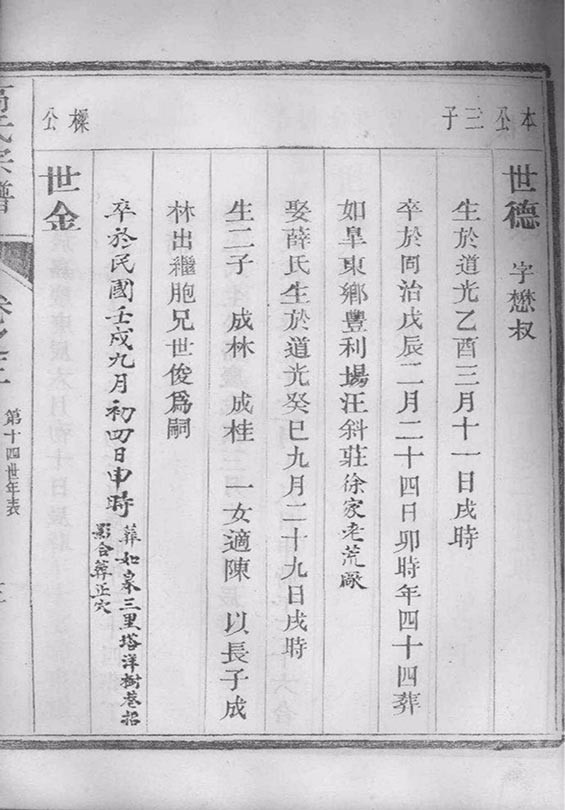 本公三子
世德 字懋叔
生於道光乙酉三月十一日戌時
卒於同治戊辰二月二十四日卯時年四十四葬
如臯東鄉豐利場汪斜莊徐家老荒厫
娶薛氏生於道光癸巳九月二十九日戌時
生二子 成林 成桂 一女適陳 以長子成
林出繼胞兄世俊爲嗣
卒於民國壬戌九月初四日申時
葬如皋三里塔洋樹巷招
影合葬正穴
樑公
世金
高氏宗譜
卷之二
第十四世年表